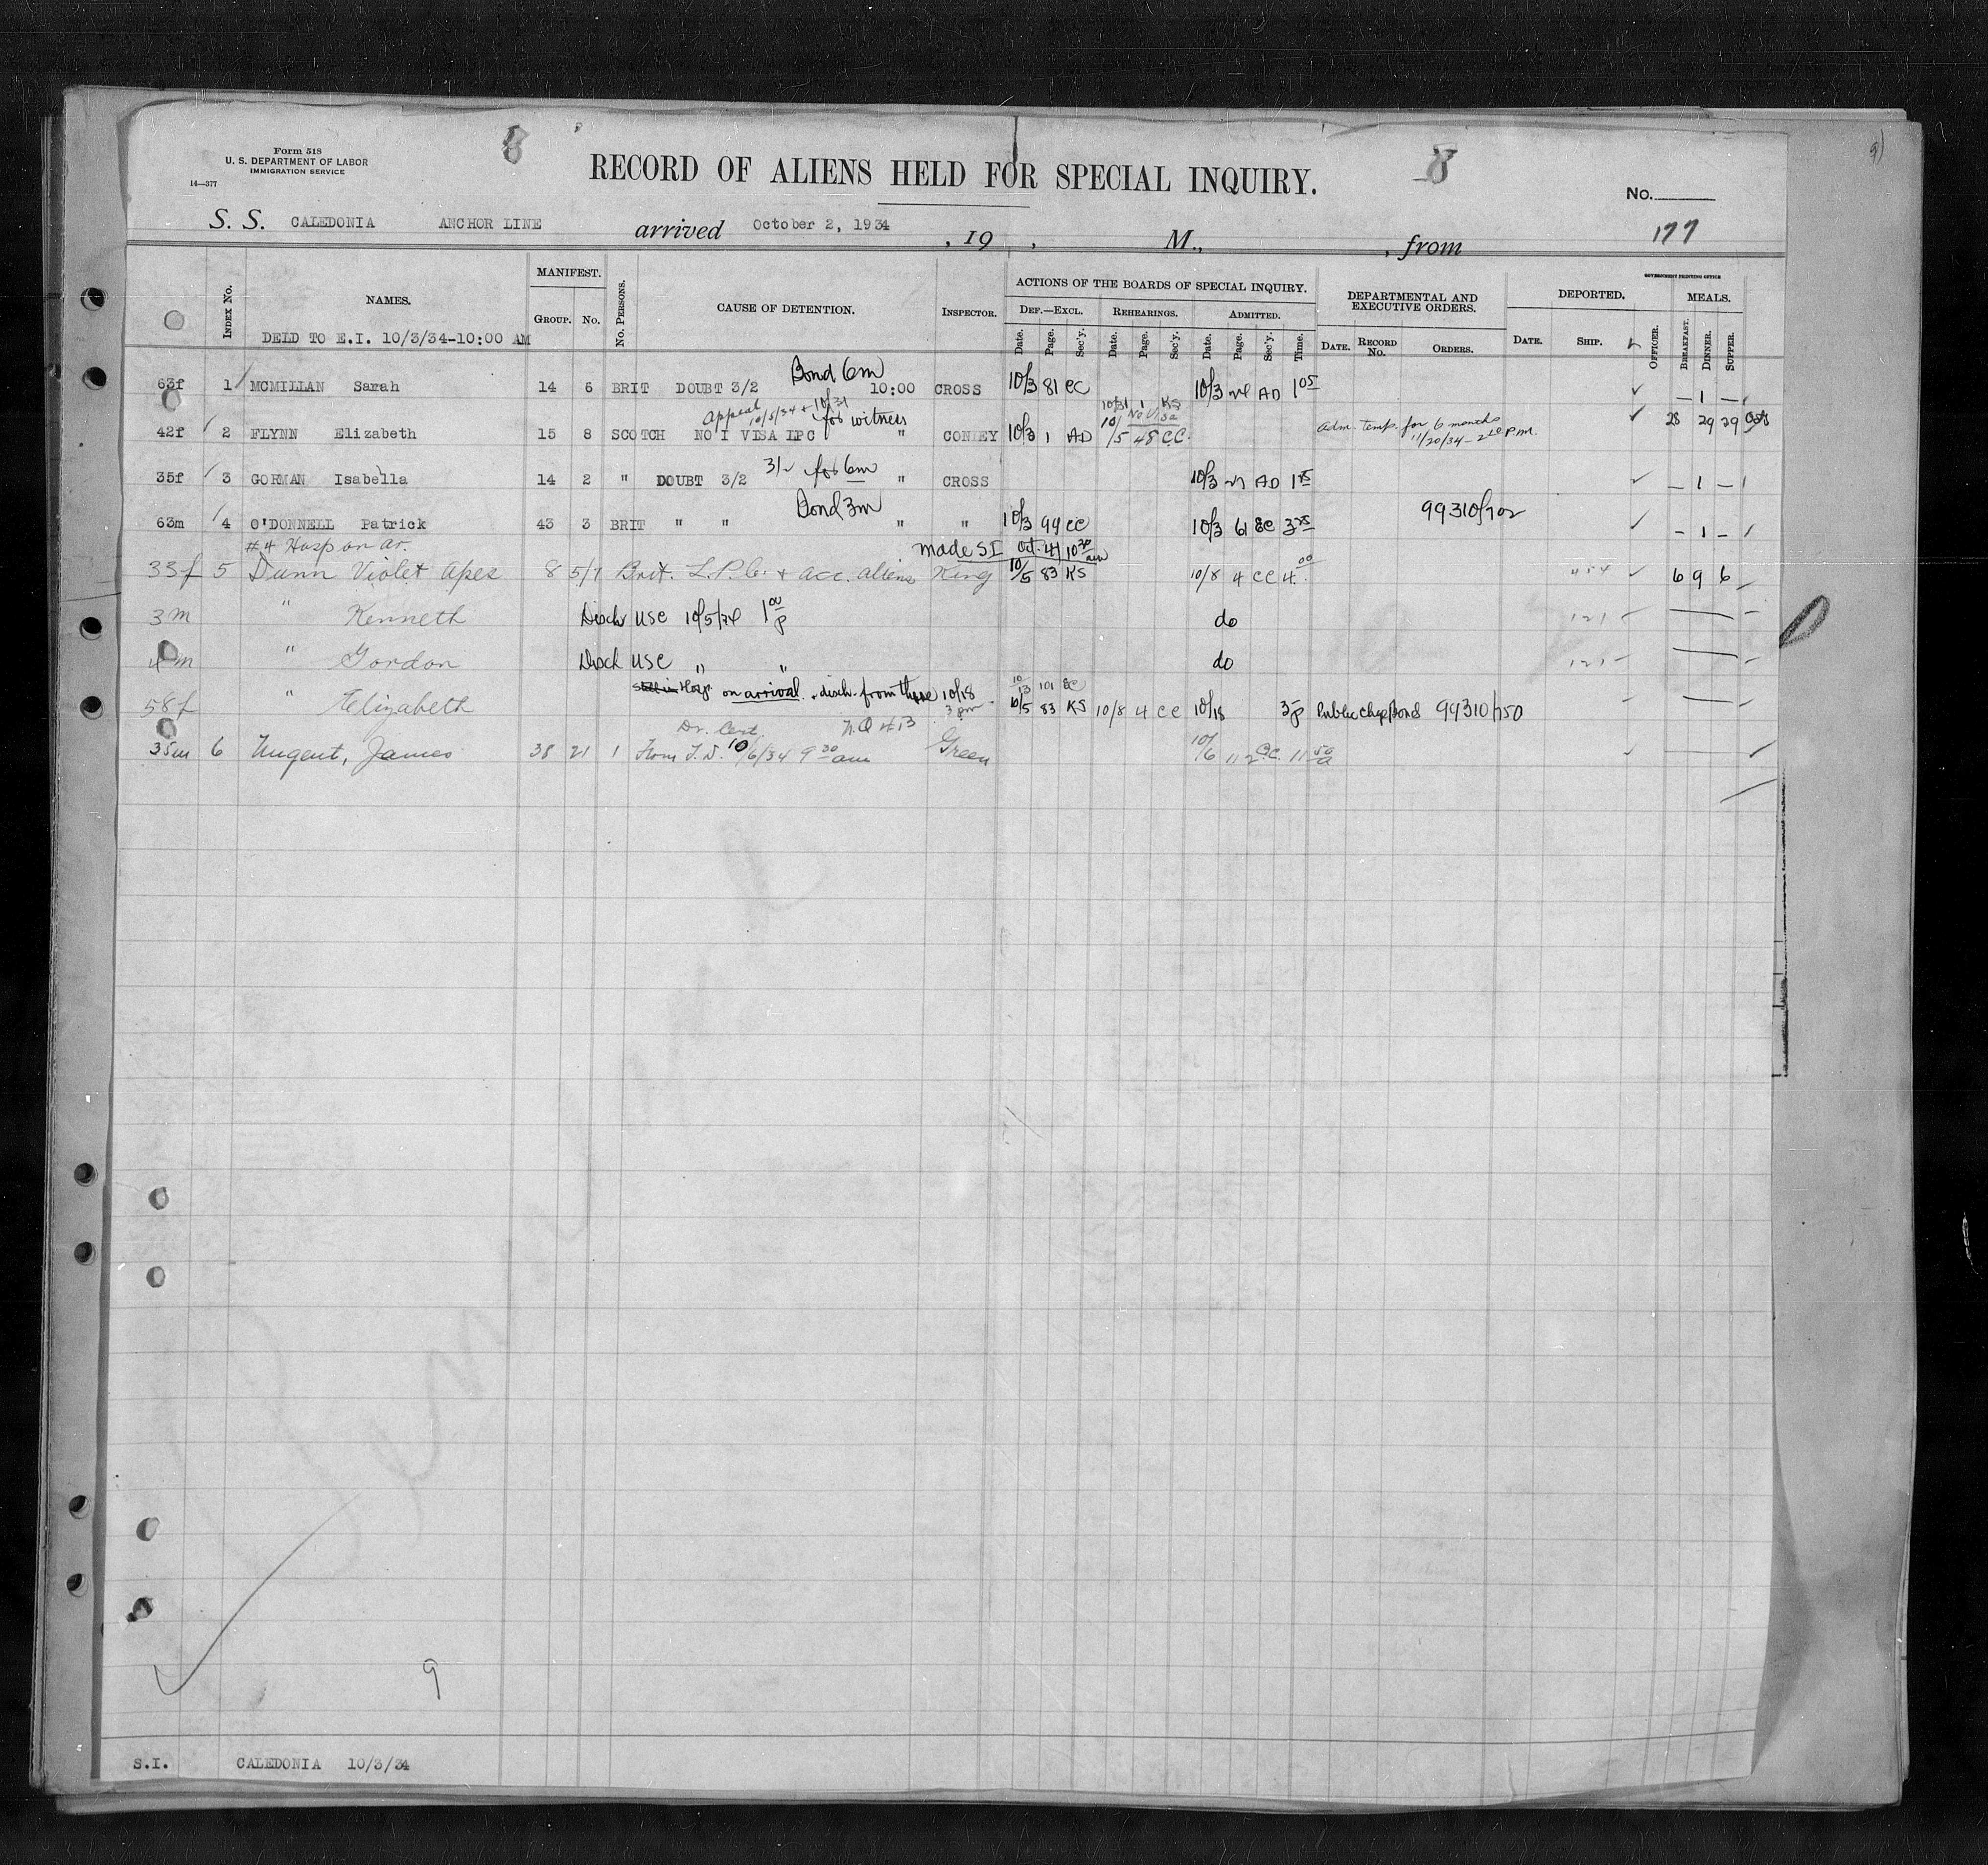 8
8
9)
Form 518
U. S. DEPARTMENT OF LABOR
IMMIGRATION SERVICE
14—377
RECORD OF ALIENS HELD FOR SPECIAL INQUIRY.
No.
177
S. S. CALEDONIA ANCHOR LINE arrived October 2, 1934 , 19 , M., , from
INDEX No. NAMES. MANIFEST. GROUP. No. No. PERSONS. CAUSE OF DETENTION. INSPECTOR. ACTIONS OF THE BOARDS OF SPECIAL INQUIRY. DEPARTMENTAL AND EXECUTIVE ORDERS. DEPORTED. GOVERNMENT PRINTING OFFICE MEALS.
DEF.—EXCL. REHEARINGS. ADMITTED.
DELD TO E.I. 10/3/34-10:00 AM Date. Page. Sec'y. Date. Page. Sec'y. Date. Page. Sec'y. Time. DATE. RECORD No. ORDERS. DATE. SHIP. OFFICER. BREAKFAST. DINNER. SUPPER.
Bond 6m
63f 1 MCMILLAN Sarah 14 6 BRIT DOUBT 3/2 10:00 CROSS 10/3 81 CC 10/3 AD 1 05 — 1 —
Appeal 10/5/34 + 10/31 for witness 10/31 1 KS No Visa
42f 2 FLYNN Elizabeth 15 8 SCOTCH NO I VISA LPC " CONEY 10/3 1 AD 10/5 48 CC. Adm. temp. for 6 months 28 29 29
11/20/34 P.M.
for 6m
35f 3 GORMAN Isabella 14 2 " DOUBT 3/2 " CROSS 10/3 AD — 1 —
Bond 3m
63m 4 O'DONNELL Patrick 43 3 BRIT " " " " 10/3 99 CC 10/3 61 99310/702 — 1 —
#4 Hosp on ar. made SI Oct. 4 10 30 am
33f 5 Dunn Violet 8 5/7 Brit. L.P.C. + acc. aliens King 10/5 83 KS 10/8 4 CC 4 00 6 9 6
3m " Kenneth Disch USC 10/5/34 1 00 p do
4m " Gordon Disch USC " " do
Hosp. on arrival. disch. from there 10/18 3 pm 10/13 101
58f " Elizabeth 10/5 83 KS 10/8 4 CC 10/18 3p Public Chge Bond 99310/750
Dr. Cert.
35m 6 Nugent, James 38 21 1 From T.D. 10/6/34 9 30 am Green 10/6 112 C.C. 11 50 a
9
S.I. CALEDONIA 10/3/34